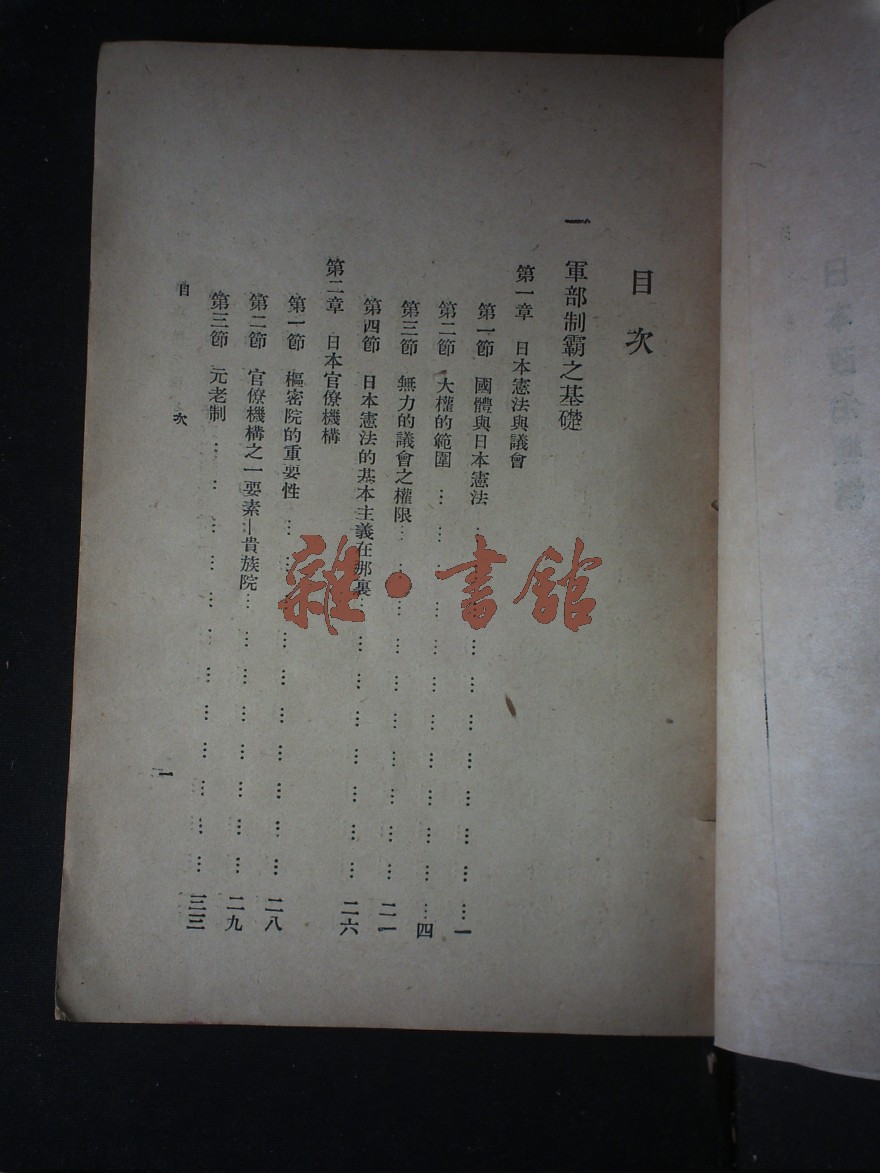 目次
一 軍部制霸之基礎
第一章 日本憲法與議會
第一節 國體與日本憲法……………………一
第二節 大權的範圍……………………四
第三節 無力的議會之權限……………………二一
第四節 日本憲法的基本主義在那裏……………………二六
第二章 日本官僚機構
第一節 樞密院的重要性……………………二八
第二節 官僚機構之一要素—貴族院……………………二九
第三節 元老制……………………三三
目 次
一
雜·書館